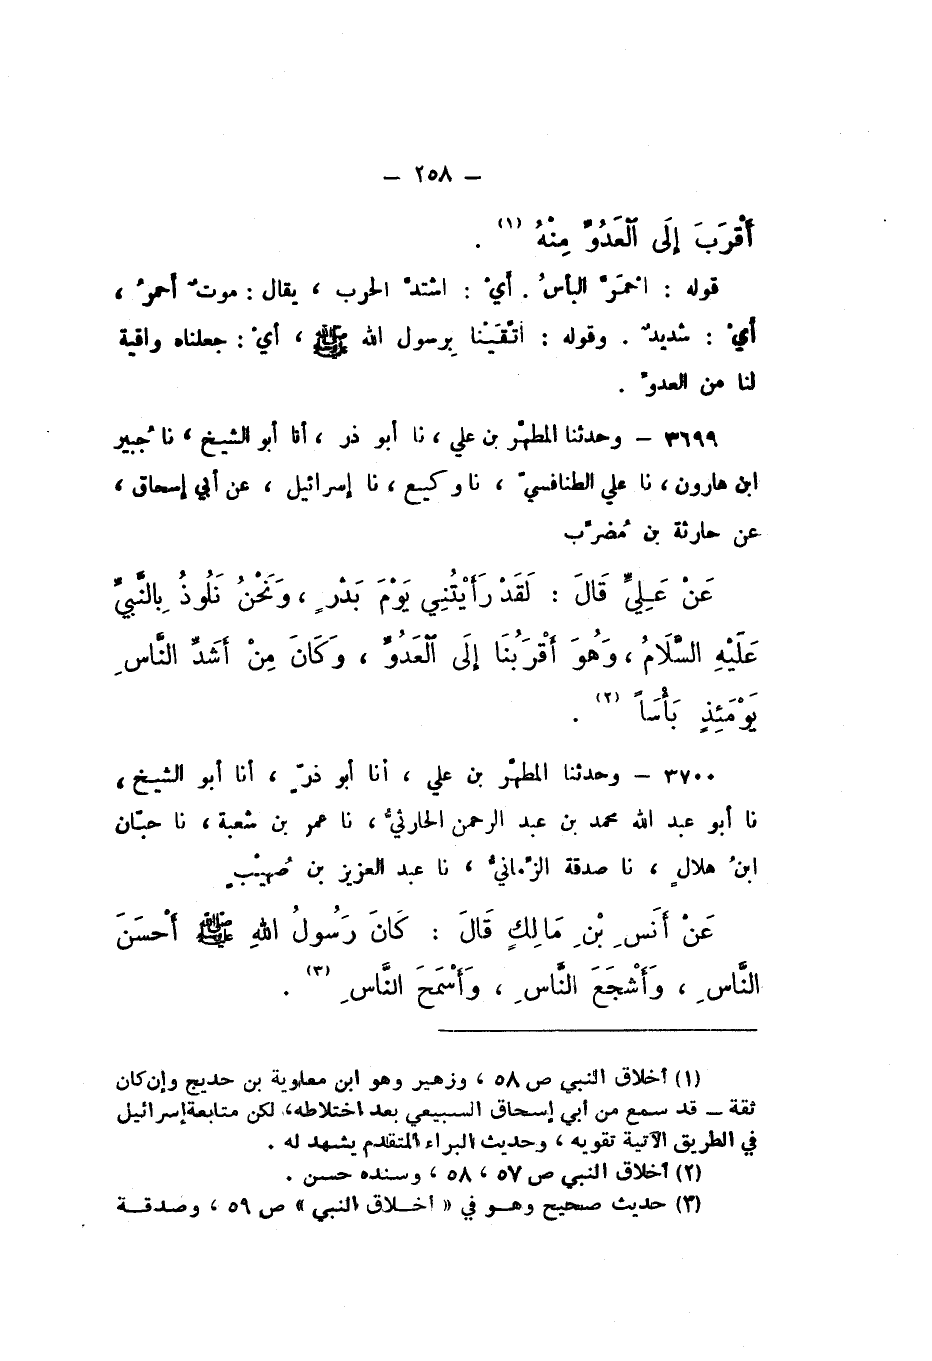 – ٢٥٨ –
أَقْرَبَ إِلَى ٱلْعَدُوِّ مِنْهُ (١) .
قوله : احْمَرَّ البأسُ . أيْ : اشتدَّ الحرب ، يقال : موتٌ أحمرُ ،
أيْ : شديدٌ . وقوله : اتَّقَيْنا بِرسول الله ﷺ ، أيْ : جعلناه واقية
لنا من العدوّ .
٣٦٩٩ – وحدثنا المطهّر بن علي ، نا أبو ذر ، أنا أبو الشيخ ، نا جُبير
ابن هارون ، نا علي الطنافسيّ ، نا وكيع ، نا إسرائيل ، عن أبي إسحاق ،
عن حارثة بن مُضرّب
عَنْ عَلِيٍّ قَالَ : لَقَدْ رَأَيْتُنِي يَوْمَ بَدْرٍ ، وَنَحْنُ نَلُوذُ بِالنَّبِيِّ
عَلَيْهِ السَّلَامُ ، وَهُوَ أَقْرَبُنَا إِلَى ٱلْعَدُوِّ ، وَكَانَ مِنْ أَشَدِّ النَّاسِ
يَوْمَئِذٍ بَأْسَاً (٢) .
٣٧٠٠ – وحدثنا المطهّر بن علي ، أنا أبو ذرّ ، أنا أبو الشيخ ،
نا أبو عبد الله محمد بن عبد الرحمن الحارثيُّ ، نا عمر بن شعبة ، نا حبّان
ابنُ هلالٍ ، نا صدقة الزِّمانيُّ ، نا عبد العزيز بن صُهيْبٍ
عَنْ أَنَسِ بْنِ مَالِكٍ قَالَ : كَانَ رَسُولُ اللهِ ﷺ أَحْسَنَ
النَّاسِ ، وَأَشْجَعَ النَّاسِ ، وَأَسْمَحَ النَّاسِ (٣) .
(١) أخلاق النبي ص ٥٨ ، وزهير وهو ابن معاوية بن حديج وإن كان
ثقة – قد سمع من أبي إسحاق السبيعي بعد اختلاطه ، لكن متابعة إسرائيل
في الطريق الآتية تقويه ، وحديث البراء المتقدم يشهد له .
(٢) أخلاق النبي ص ٥٧ ، ٥٨ ، وسنده حسن .
(٣) حديث صحيح وهو في « اخلاق النبي » ص ٥٩ ، وصدقة